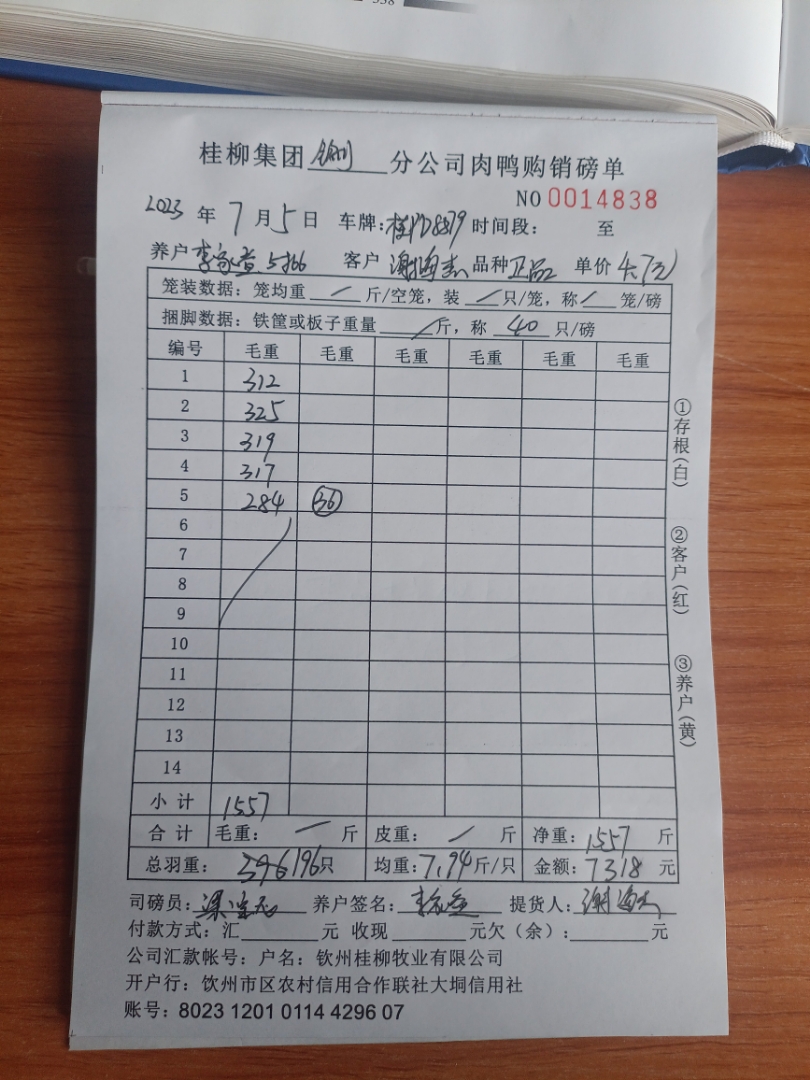 桂柳集团 钦州 分公司肉鸭购销磅单
NO 0014838
2023 年 7 月 5 日 车牌: 时间段: 至
养户 客户 谢海杰 品种 正品 单价 4.7元
笼装数据: 笼均重 / 斤/空笼, 装 / 只/笼, 称 / 笼/磅
捆脚数据: 铁筐或板子重量 / 斤, 称 40 只/磅
编号 毛重 毛重 毛重 毛重 毛重 毛重
1 312
2 325
3 319
4 317
5 284 36
6
7
8
9
10
11
12
13
14
小计 1557
合计 毛重: 一 斤 皮重: / 斤 净重: 1557 斤
总羽重: 196只 均重: 7.94斤/只 金额: 7318 元
司磅员: 养户签名: 提货人: 谢海杰
付款方式: 汇 元 收现 元欠(余): 元
公司汇款帐号: 户名: 钦州桂柳牧业有限公司
开户行: 饮州市区农村信用合作联社大垌信用社
账号: 8023 1201 0114 4296 07
①存根(白)
②客户(红)
③养户(黄)